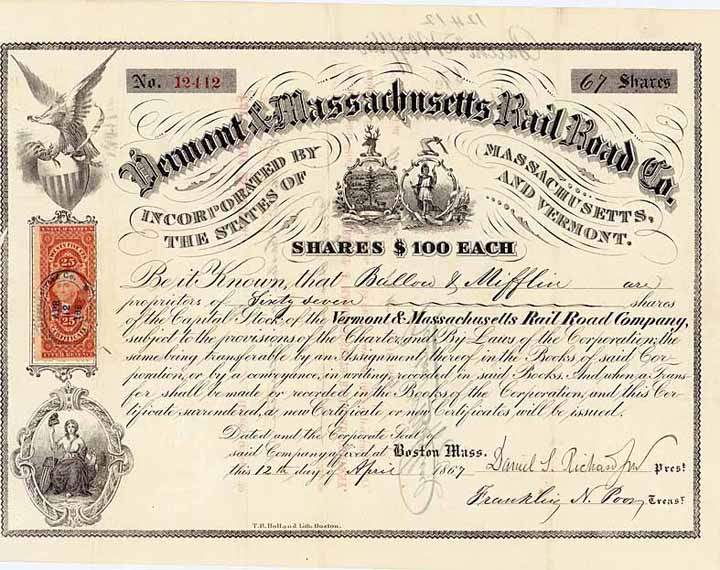 No. 12412
67 Shares
Vermont & Massachusetts Rail Road Co.
INCORPORATED BY
THE STATES OF
MASSACHUSETTS,
AND VERMONT.
SHARES $100 EACH
Be it Known, that Ballou & Mifflin are
proprietors of Sixty seven shares
of the Capital Stock of the Vermont & Massachusetts Rail Road Company,
subject to the provisions of the Charter, and By Laws of the Corporation; the
same being transferable by an Assignment, thereof, in the Books of said Cor-
poration, or by a conveyance, in writing, recorded in said Books. And when a Trans-
fer shall be made or recorded in the Books of the Corporation, and this Cer-
tificate, surrendered, a new Certificate or new Certificates will be issued.
Dated and the Corporate Seal of
said Company affixed at Boston Mass.
this 12th day of April 1867
Daniel S. Richardson Prest
Franklin N. Poor Treasr
25
25
CERTIFICATE
T.R. Holland Lith. Boston.